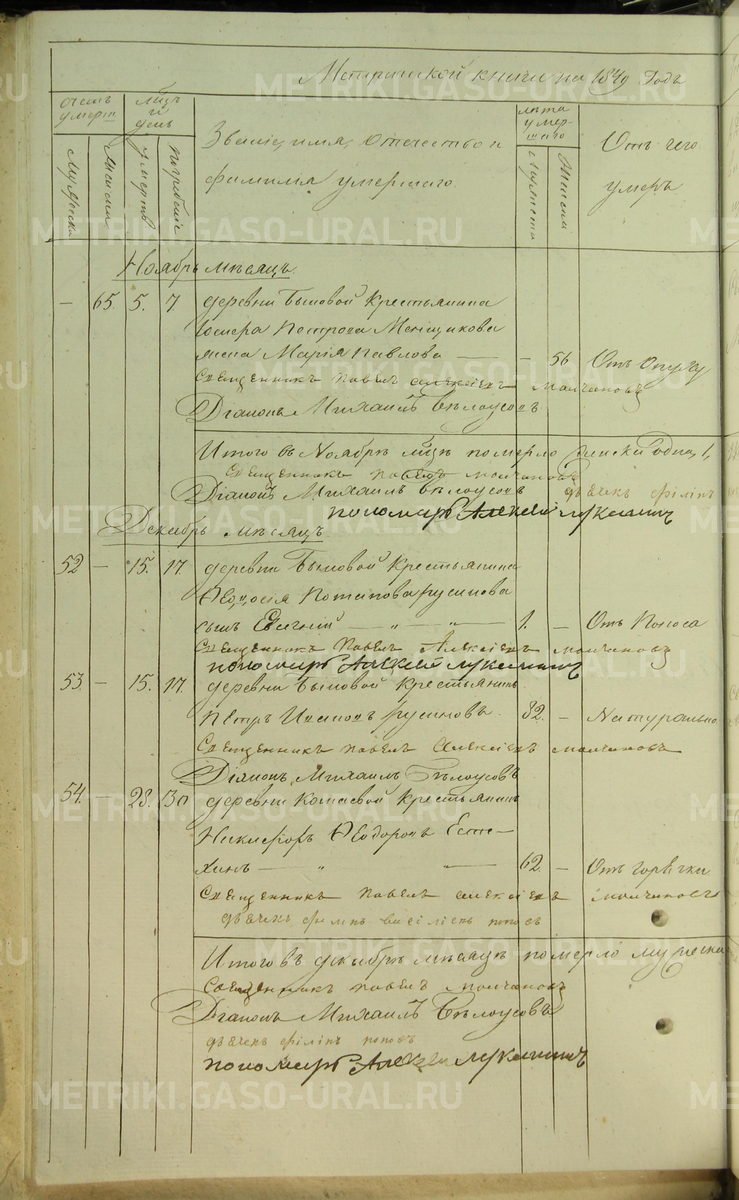 Метрической книги на 1849 годъ
счетъ умерш
мѣсяцъ и день
Званіе, имя, отечество и
фамилія умершаго
лѣта умершаго
Отъ чего
умеръ
мужеска
женска
умертв
погребеніе
мужеска
женска
Ноябрь мѣсяцъ
— 65. 5. 7 деревни Бымовой Крестьянина
Петрова Менщикова
жена Марія Павлова — — 56 Отъ опуху
Священникъ Павелъ Алексіевъ Молчановъ
Діаконъ Михаилъ Бѣлоусовъ
Итого въ Ноябрѣ мѣсяцѣ померло женска одна, 1,
Священникъ Павелъ Молчановъ
Діаконъ Михаилъ Бѣлоусовъ дьячекъ Филипъ
пономарь Алексей Лукашинъ
Декабрь мѣсяцъ
52 — 15. 17. деревни Бымовой Крестьянина
Ѳедосея Потапова Русинова
сынъ Евгений — „ — „ — 1. — Отъ поноса
Священникъ Павелъ Алексіевъ Молчановъ
пономарь Алексей Лукашинъ
53. — 15. 17. деревни Бымовой Крестьянинъ
Петръ Ивановъ Русиновъ. 82. — Натурально
Священникъ Павелъ Алексіевъ Молчановъ
Діаконъ Михаилъ Бѣлоусовъ
54. — 28. 30 деревни Копаевой Крестьянинъ
Никифоръ Ѳедоровъ Есте-
хинъ — „ — 62. — Отъ горячки
Священникъ Павелъ Алексіевъ Молчановъ
дьячекъ Филипъ Попов
Итого въ декабрѣ мѣсяцѣ померло мужеска
Священникъ Павелъ Молчановъ
Діаконъ Михаилъ Бѣлоусовъ
дьячекъ Филипъ Поповъ
пономарь Алексей Лукашинъ
METRIKI.GASO-URAL.RU